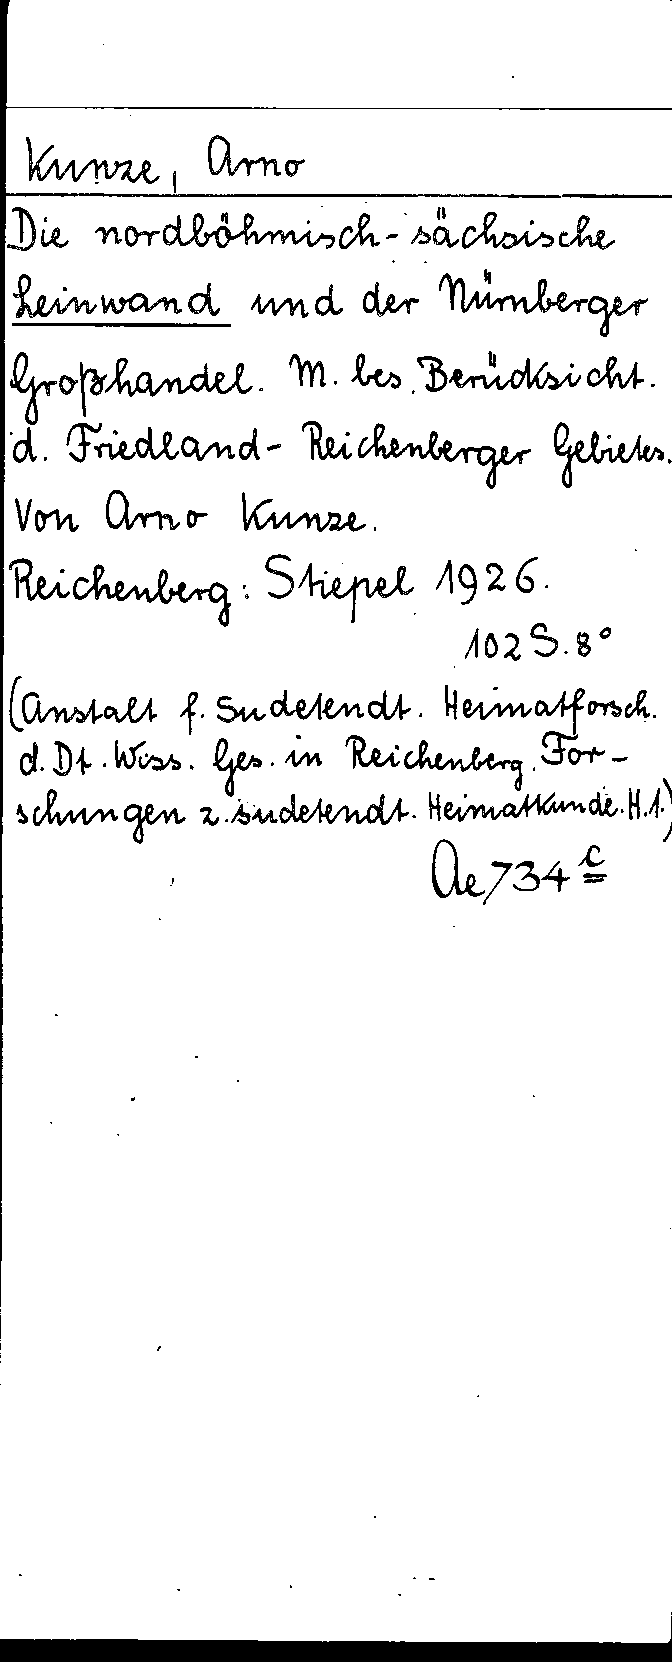 Kunze, Arno
Die nordböhmisch-sächsische
Leinwand und der Nürnberger
Großhandel. M. bes. Berücksicht.
d. Friedland-Reichenberger Gebietes.
Von Arno Kunze.
Reichenberg: Stiepel 1926.
102 S. 8°
(Anstalt f. Sudetendt. Heimatforsch.
d. Dt. Wiss. Ges. in Reichenberg. For-
schungen z. sudetendt. Heimatkunde. H.1.)
Ae 734 c